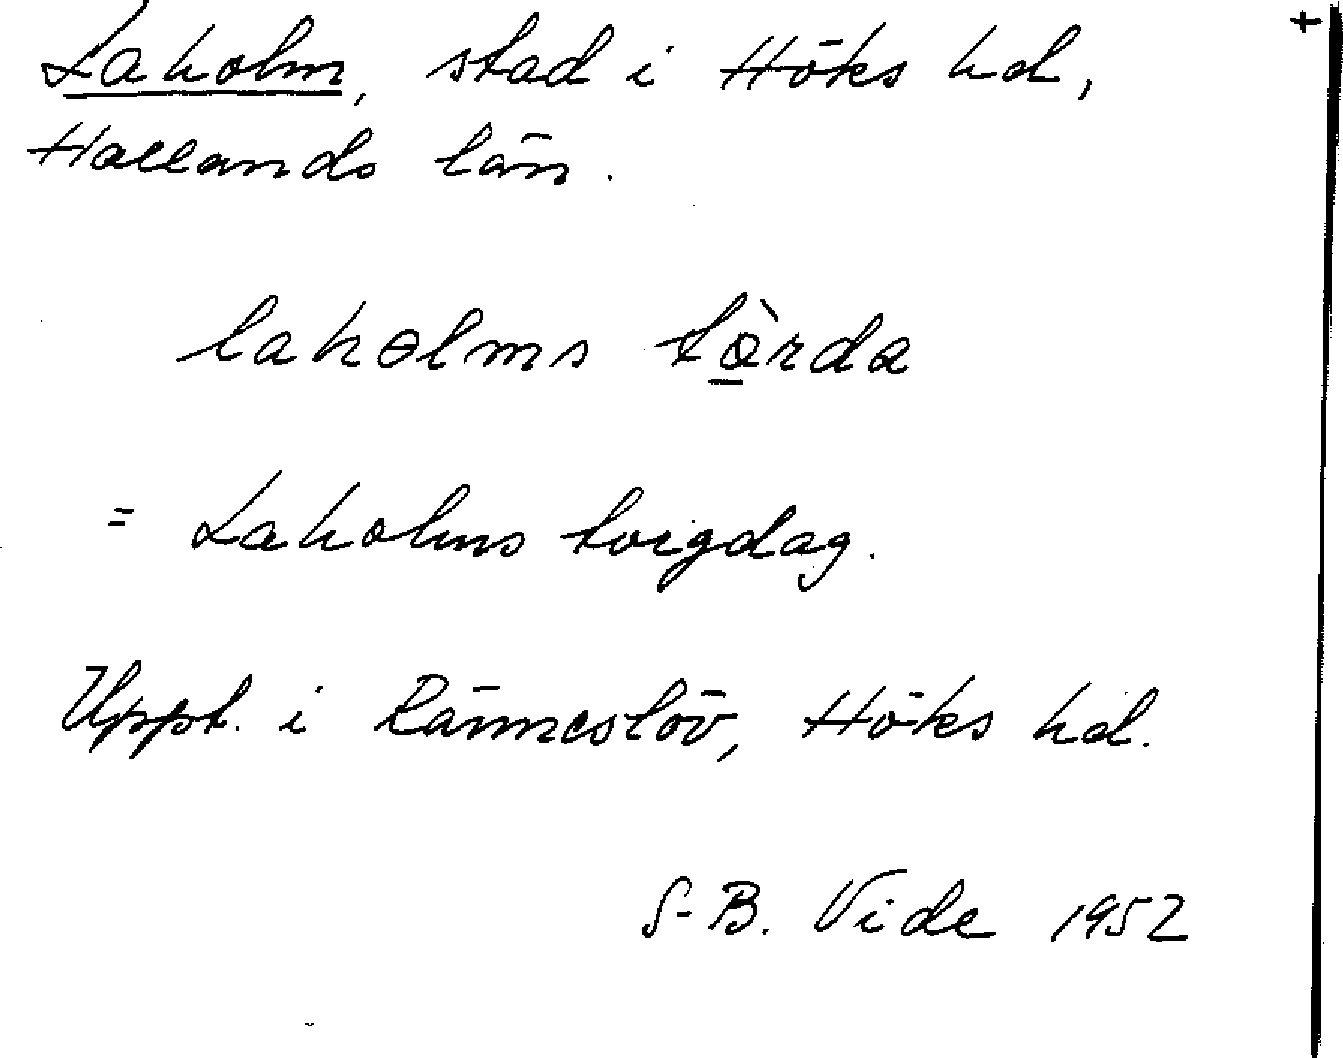 Laholm, stad i Höks hd,
Hallands län.
laholms tò̱rda
= Laholms torgdag.
Uppt. i Ränneslöv, Höks hd.
S-B. Vide 1952